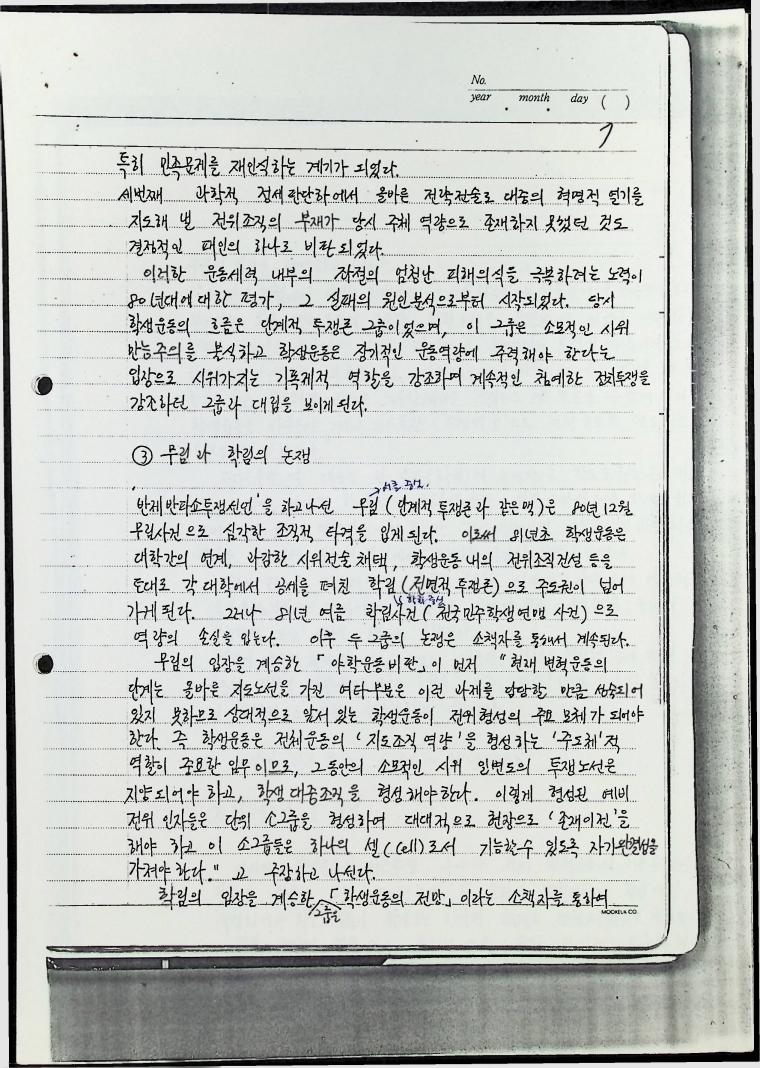 No.
year . month . day ( )
7
특히 민족문제를 재인식하는 계기가 되었다.
세번째 과학적 정세판단하에서 올바른 전략전술로 대중의 혁명적 열기를
지도해 낼 전위조직의 부재가 당시 주체 역량으로 존재하지 못했던 것도
결정적인 패인의 하나로 비판되었다.
이러한 운동세력 내부의 좌절의 엄청난 피해의식을 극복하려는 노력이
80년대에 대한 평가, 그 실패의 원인분석으로부터 시작되었다. 당시
학생운동의 흐름은 단계적 투쟁론 그룹이 있으며, 이 그룹은 소모적인 시위
만능주의를 불식하고 학생운동은 장기적인 운동역량에 주력해야 한다는
입장으로 시위가지는 기폭제적 역할을 강조하며 계속적인 첨예한 정치투쟁을
강조하던 그룹과 대립을 보이게 된다.
③ 무림과 학림의 논쟁
→서울 중심
'반제반파쇼투쟁선언'을 하고나선 무림(단계적 투쟁론과 같은맥)은 80년 12월
무림사건으로 심각한 조직적 타격을 입게 된다. 이로써 81년초 학생운동은
대학간의 연계, 과감한 시위전술 채택, 학생운동내의 전위조직건설 등을
토대로 각 대학에서 공세를 펴친 학림(전면적 투쟁론)으로 주도권이 넘어
가게 된다. 그러나 81년 여름 학림사건(전국민주학생연맹 사건)으로
역량의 손실을 입는다. 이후 두 그룹의 논쟁은 소책자를 통해서 계속된다.
무림의 입장을 계승한 「야학운동비판」이 먼저 "현재 변혁운동의
단계는 올바른 지도노선을 가진 여타부분은 이런 과제를 담당할 만큼 성숙되어
있지 못하므로 상대적으로 앞서 있는 학생운동이 전위형성의 주요 모체가 되어야
한다. 즉 학생운동은 전체운동의 '지도조직 역량'을 형성하는 '주도체'적
역할이 중요한 임무이므로, 그동안의 소모적인 시위 일변도의 투쟁노선은
지양되어야 하고, 학생대중조직을 형성해야한다. 이렇게 형성된 예비
전위 인자들은 단위 소그룹을 형성하여 대대적으로 현장으로 '존재이전'을
해야 하고 이 소그룹들은 하나의 셀(Cell)로서 기능할수 있도록 자기완결성을
가져야 한다." 고 주장하고 나선다.
학림의 입장을 계승한 그룹은 「학생운동의 전망」이라는 소책자를 통하여
MOOKEUK CO